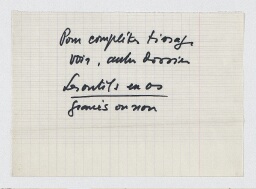 Pour compléter tirage
voir, autre dossier
Les outils en os
gravés ou non